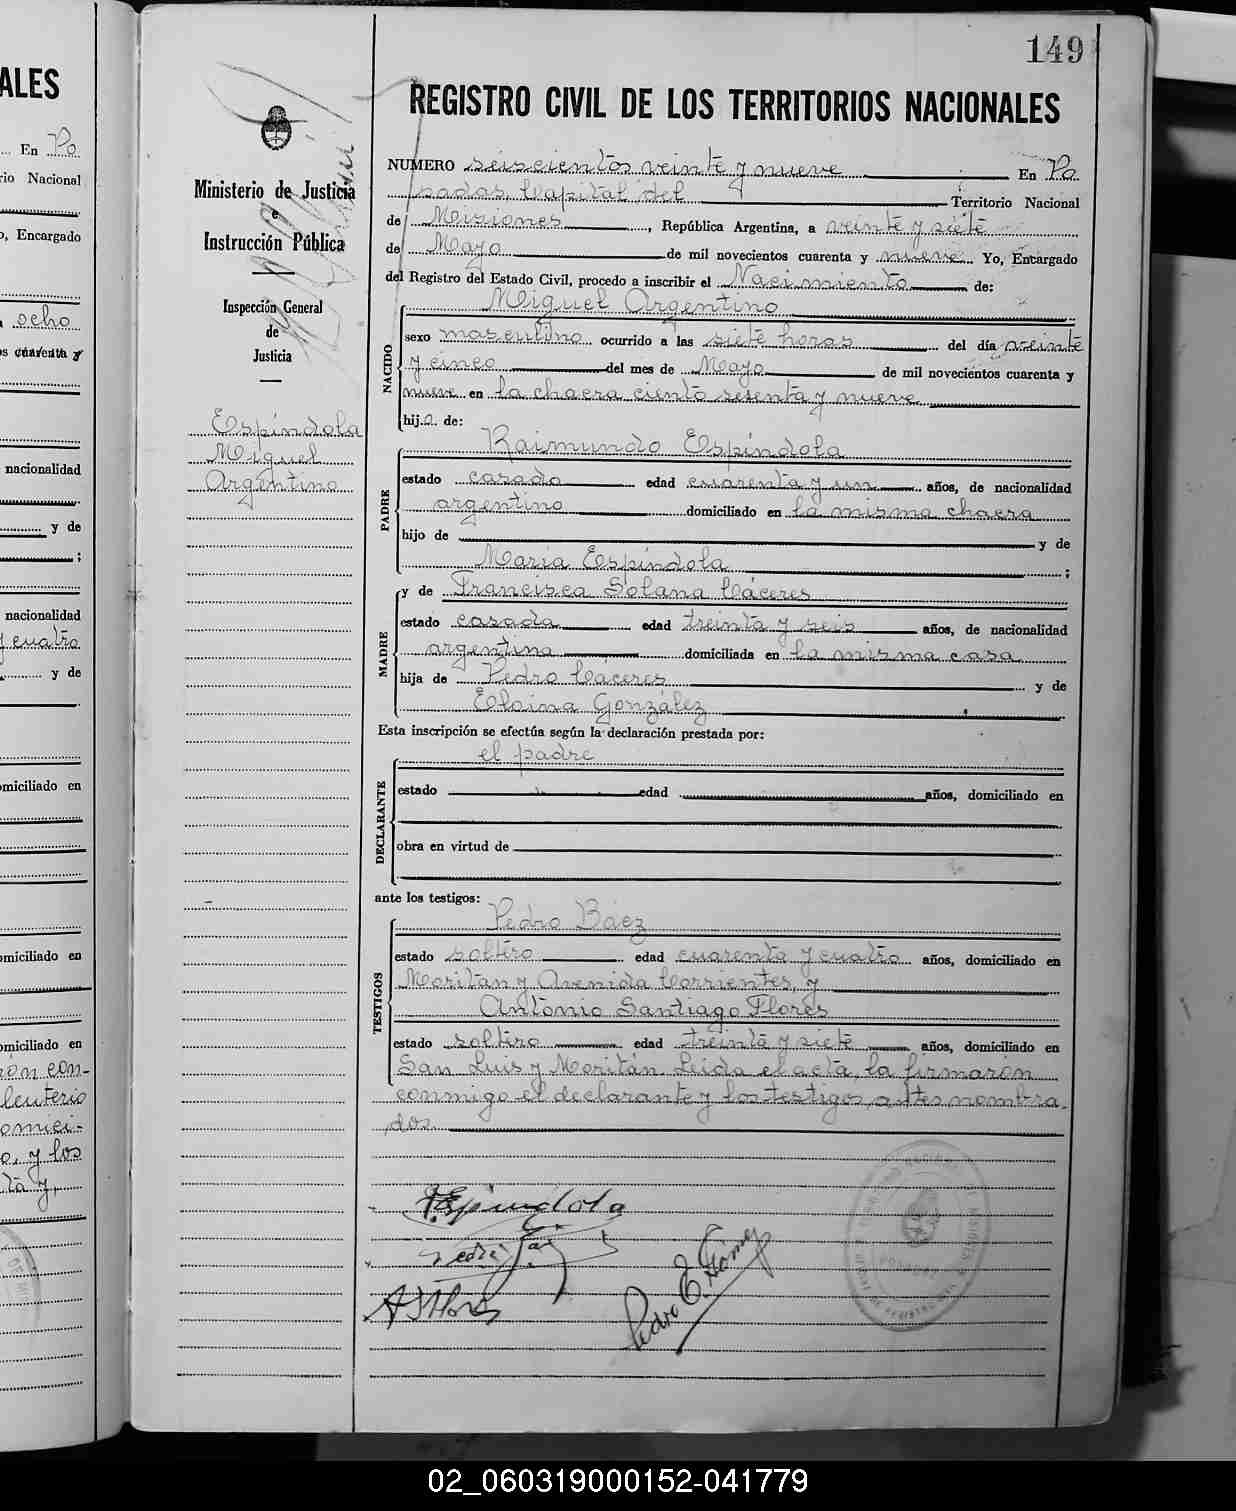 149
REGISTRO CIVIL DE LOS TERRITORIOS NACIONALES
Ministerio de Justicia
e
Instrucción Pública
Inspección General
de
Justicia
Espíndola
Miguel
Argentino
NUMERO seiscientos veinte y nueve En Po
sadas, Capital del Territorio Nacional
de Misiones, República Argentina, a veinte y siete
de Mayo de mil novecientos cuarenta y nueve Yo, Encargado
del Registro del Estado Civil, procedo a inscribir el Nacimiento de:
NACIDO
Miguel Argentino
sexo masculino ocurrido a las siete horas del día veinte
y cinco del mes de Mayo de mil novecientos cuarenta y
nueve en la chacra ciento sesenta y nueve
hijo de:
PADRE
Raimundo Espíndola
estado casado edad cuarenta y un años, de nacionalidad
argentino domiciliado en la misma chacra
hijo de y de
María Espíndola ;
MADRE
y de Francisca Solana Cáceres
estado casada edad treinta y seis años, de nacionalidad
argentina domiciliada en la misma casa
hija de Pedro Cáceres y de
Elvina González
Esta inscripción se efectúa según la declaración prestada por:
DECLARANTE
el padre
estado edad años, domiciliado en
obra en virtud de
ante los testigos:
TESTIGOS
Pedro Báez
estado soltero edad cuarenta y cuatro años, domiciliado en
Moritán y Avenida Corrientes, y
Antonio Santiago Flores
estado soltero edad treinta y siete años, domiciliado en
San Luis y Moritán. Leida el acta, la firmaron
conmigo el declarante y los testigos antes nombra
dos.
R. Espindola
A S Flores
Pedro E. Gómez
ALES
En Po
rio Nacional
o, Encargado
ocho
nacionalidad
y de
;
nacionalidad
y cuatro
y de
omiciliado en
omiciliado en
omiciliado en
ron con-
leuterio
omici-
o, y los
ta y
02_060319000152-041779